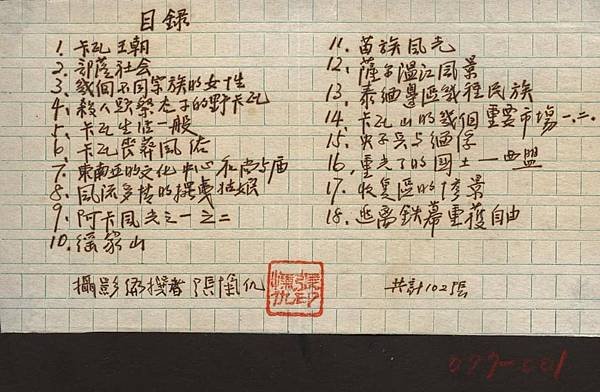 目錄
1. 卡瓦王朝
2. 部落社会
3. 幾個不同宗族的女性
4. 殺人野祭老子的野卡瓦
5. 卡瓦生活一般
6. 卡瓦喪葬風俗
7. 東南亞的文化中心和尚与庙
8. 風流多情的擺夷姑娘
9. 阿卡風光之一之二
10. 猺家山
11. 苗族風光
12. 薩尔溫江風景
13. 泰緬邊區幾種民族
14. 卡瓦山的幾個重要市場一.二.
15. 与
16. 重光了的國土一西盟
17. 收复區的情景
18. 逃離鉄幕重獲自由
攝影編撰者 張慎仇
共計102張
097-001